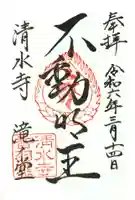 奉拝
令和六年三月十四日
不動明王
清水寺
滝之堂
清水寺